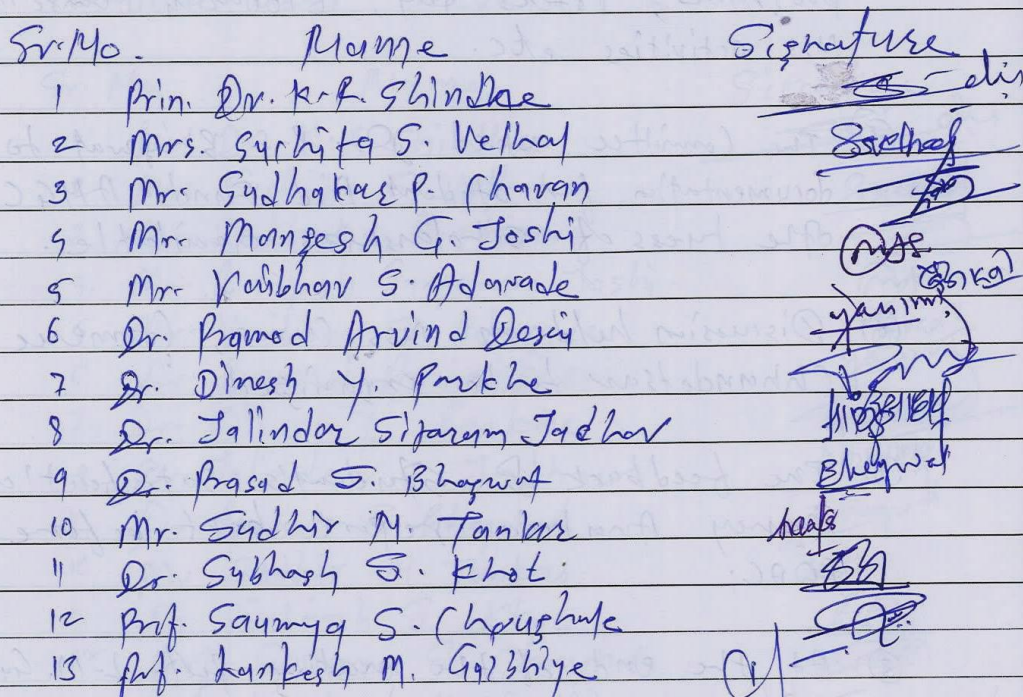 Sr. No. Name Signature
1 Prin. Dr. K. R. Shindhe
2 Mrs. Suchita S. Velhal
3 Mr. Sudhakar P. Chavan
4 Mr. Mangesh G. Joshi
5 Mr. Vaibhav S. Adavade
6 Dr. Pramod Arvind Desai
7 Dr. Dinesh Y. Parkhe
8 Dr. Jalindar Sitaram Jadhav
9 Dr. Prasad S. Bhagwat Bhagwat
10 Mr. Sudhir M. Tankar
11 Dr. Subhash S. Khot.
12 Prof. Saumya S. Choughule
13 Prof. Lankesh M. Gajbhiye